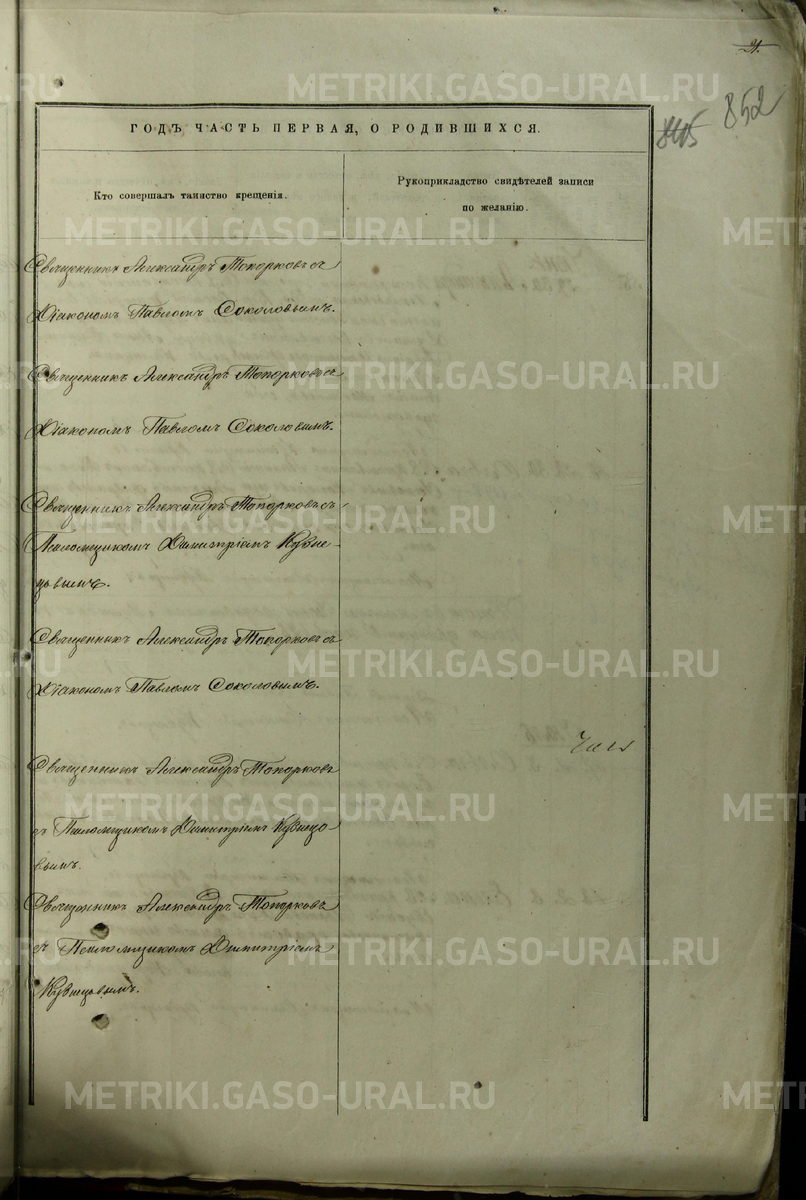 21.
852
845
ГОДЪ ЧАСТЬ ПЕРВАЯ, О РОДИВШИХСЯ.
Кто совершалъ таинство крещенія.
Рукоприкладство свидѣтелей записи
по желанію.
Священникъ Александръ Топорковъ съ
Діакономъ Павломъ Соколовымъ.
Священникъ Александръ Топорковъ съ
Діакономъ Павломъ Соколовымъ.
Священникъ Александръ Топорковъ съ
Псаломщикомъ Димитріемъ Кузне-
цовымъ.
Священникъ Александръ Топорковъ съ
Діакономъ Павломъ Соколовымъ.
Священникъ Александръ Топорковъ
съ Псаломщикомъ Димитріемъ Кузнецо-
вымъ.
Священникъ Александръ Топорковъ
съ Псаломщикомъ Димитріемъ
Кузнецовымъ.
METRIKI.GASO-URAL.RU